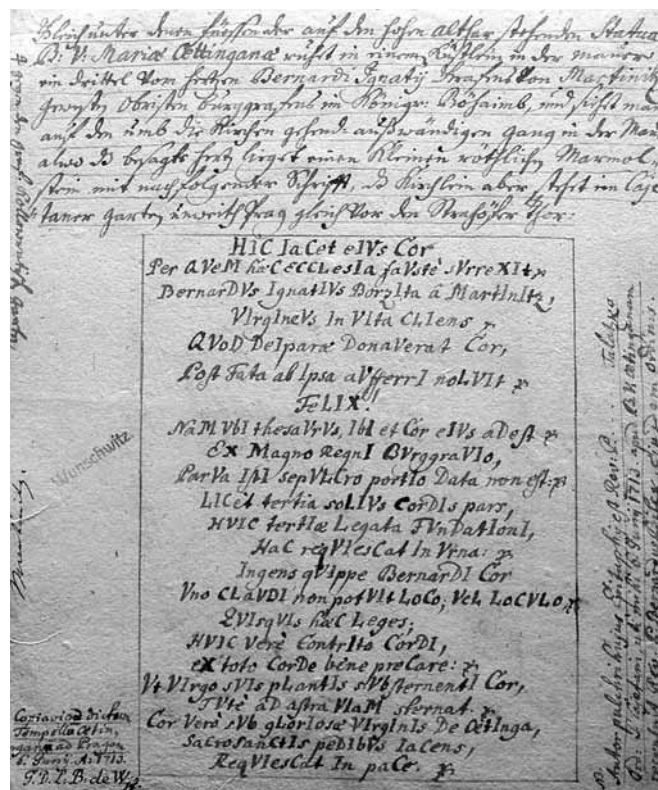 Gleich unter denen füssen der auf den hohen althar stehenden Statua
B: V: Mariæ Œttinganæ ruhet in einem Küstlein in der mauer
ein drittel vom hertzen Bernardi Ignatÿ Grafens von Martinitz
gewesten Obristen burggrafens im Königr: Böhaimb, und sihet man
auf den umb die Kirchen gehend: außwändigen gang in der Mau
alwo dz besagte hertz lieget einen Kleinen röthlichen Marmol-
stein mit nachfolgender Schrifft, dz Kirchlein aber stehet im Caje
taner garten unweith Prag gleich vor den Strahöfer Thor:
HIC IaCet eIVs Cor
Per QVeM hæC ECCLesIa faVstè sVrreXIt,
BernarDVs IgnatIVs BorzIta â MartInItz,
VIrgIneVs In VIta CLIens
QVoD DeIparæ DonaVerat Cor,
Post Fata ab Ipsa aVfferrI noLVIt
FeLIX!
NaM VbI thesaVrVs, IbI et Cor eIVs aDest
EX Magno RegnI BVrggraVIo,
ParVa IstI sepVLCro portIo Data non est:
LICèt tertIa soLIVs CorDIs pars,
HVIC tertIæ Legata FVnDatIonI,
HaC reqVIesCat In Vrna:
Ingens qVIppe BernarDI Cor
Vno CLaVDI non potVIt LoCo, VeL LoCVLo
QVIsqVIs hæC Leges,
HVIC Verè ContrIto CorDI,
eX toto CorDe bene preCare:
Vt VIrgo sVIs pLantIs sVbsternentI Cor,
TVtè aD astra VIaM sternat.
Cor Verò sVb gLorIosæ VIrgInIs De OetInga,
SaCrosanCtIs peDIbVs IaCens,
ReqVIesCat In paCe.
Wunschwitz
Copiavi ad dictam
Templo Œtin,
ganæ ad Pragam
6. Junÿ. A: 1713.
G. D. L. B. de W.
Autor pulchri hujus Epitaphii est Rev: P. Talatzko
Ord: S. Cajetani ut mihi 6. Junÿ 1713 apud B. V. Œttinganam
Rev: P. Bernardus ejusdem ordinis.